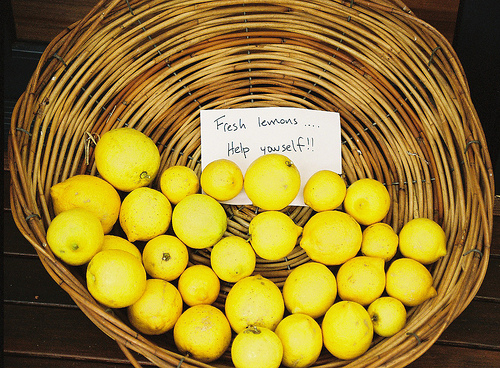 Fresh lemons ....
Help yourself!!